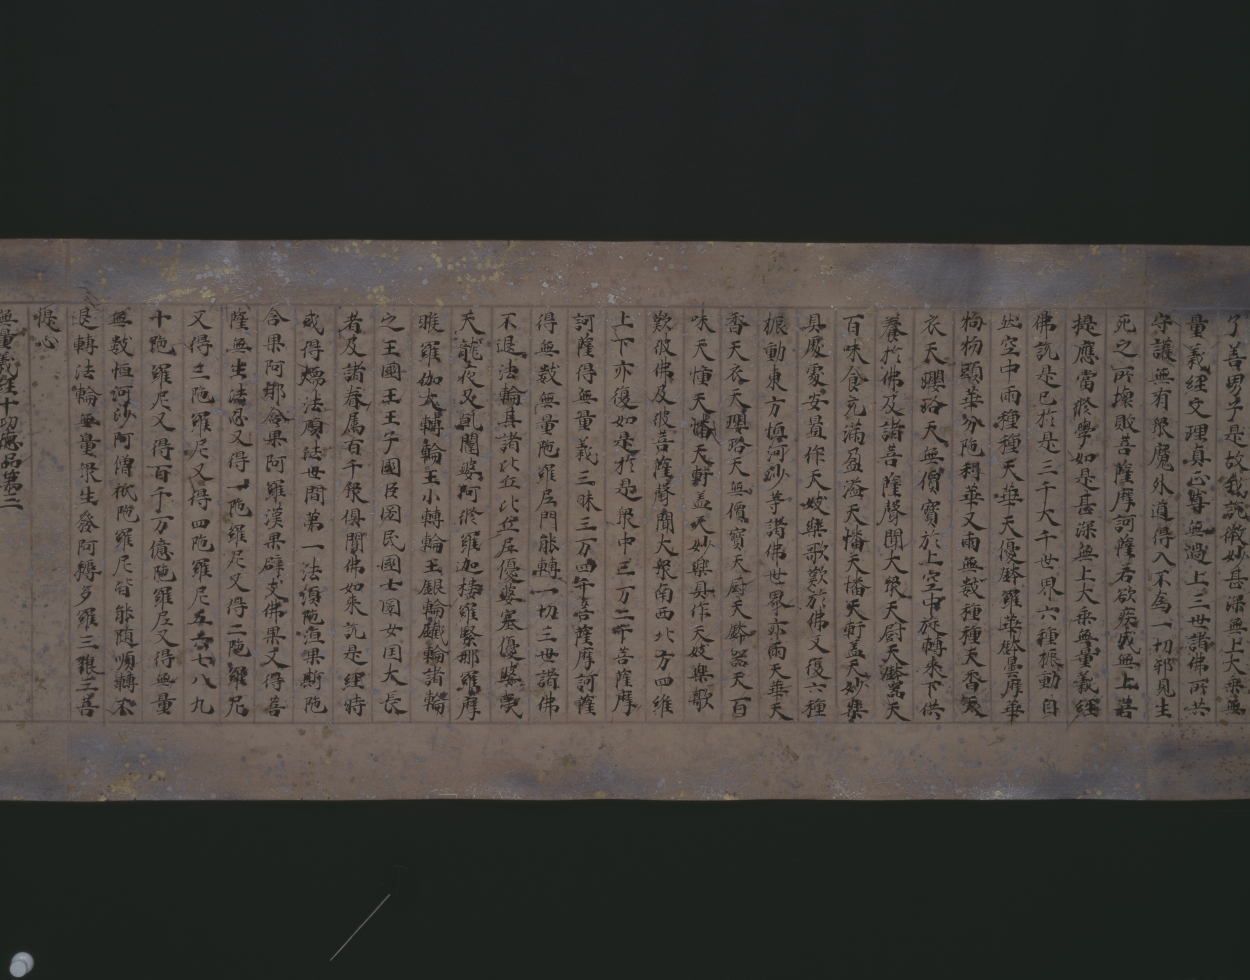 了善男子是故我說微妙甚深無上大乘無
量義經文理真正尊無過上三世諸佛所共
守護無有眾魔外道得入不為一切邪見生
死之所壞敗菩薩摩訶薩若欲疾成無上菩
提應當修學如是甚深無上大乘無量義經
佛說是已於是三千大千世界六種振動自
然空中雨種種天華天優鉢羅華鉢曇摩華
拘物頭華分陁利華又雨無數種種天香天
衣天瓔珞天無價寶於上空中旋轉來下供
養於佛及諸菩薩聲聞大眾天厨天鉢器天
百味食充滿盈溢天幡天幡天軒盖天妙樂
具處處安置作天妓樂歌歎於佛又復六種
振動東方恒河沙等諸佛世界亦雨天華天
香天衣天瓔珞天無價寶天厨天鉢器天百
味天幢天幡天軒盖天妙樂具作天妓樂歌
歎彼佛及彼菩薩聲聞大眾南西北方四維
上下亦復如是於是眾中三万二千菩薩摩
訶薩得無量義三昧三万四千菩薩摩訶薩
得無數無量陁羅尼門能轉一切三世諸佛
不退法輪其諸比丘比丘尼優婆塞優婆夷
天龍夜叉乹闥婆阿修羅迦樓羅緊那羅摩
睺羅伽大轉輪王小轉輪王銀輪鐵輪諸輪
之王國王王子國臣國民國士國女国大長
者及諸眷属百千眾俱聞佛如来說是經時
或得燸法頂法世間第一法湏陁洹果斯陁
含果阿那含果阿羅漢果辟支佛果又得菩
薩無生法忍又得一陁羅尼又得二陁羅尼
又得三陁羅尼又得四陁羅尼五六七八九
十陁羅尼又得百千万億陁羅尼又得無量
無數恒河沙阿僧祇陁羅尼皆能随順轉不
退轉法輪無量眾生發阿耨多羅三藐三菩
提心
無量義經十功德品第三